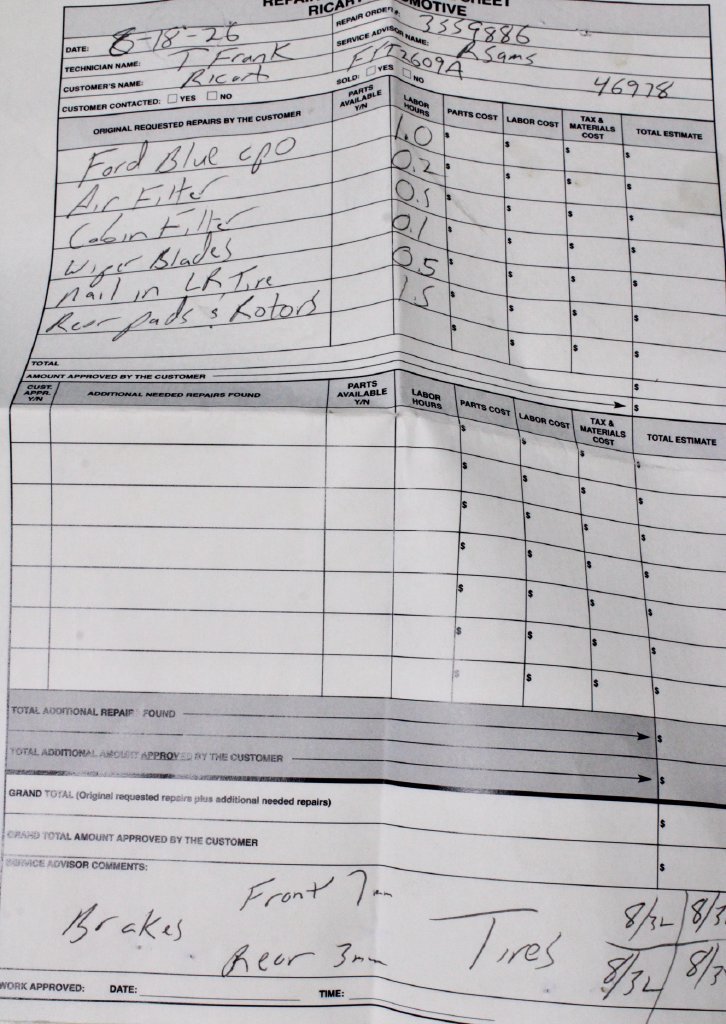 RICART AUTOMOTIVE
REPAIR ORDER #: 3559886
DATE: 6-18-26
SERVICE ADVISOR NAME: R Sams
TECHNICIAN NAME: T Frank
FIT2609A
CUSTOMER'S NAME: Ricart
SOLD: YES NO
46978
CUSTOMER CONTACTED: YES NO
ORIGINAL REQUESTED REPAIRS BY THE CUSTOMER PARTS AVAILABLE Y/N LABOR HOURS PARTS COST LABOR COST TAX & MATERIALS COST TOTAL ESTIMATE
Ford Blue CPO 1.0 $ $ $ $
Air Filter 0.2 $ $ $ $
Cabin Filter 0.5 $ $ $ $
Wiper Blades 0.1 $ $ $ $
Nail in LR Tire 0.5 $ $ $ $
Rear pads & Rotors 1.5 $ $ $ $
$ $ $ $
TOTAL $
AMOUNT APPROVED BY THE CUSTOMER $
CUST. APPR. Y/N ADDITIONAL NEEDED REPAIRS FOUND PARTS AVAILABLE Y/N LABOR HOURS PARTS COST LABOR COST TAX & MATERIALS COST TOTAL ESTIMATE
$ $ $ $
$ $ $ $
$ $ $ $
$ $ $ $
$ $ $ $
$ $ $ $
$ $ $ $
TOTAL ADDITIONAL REPAIR FOUND $
TOTAL ADDITIONAL AMOUNT APPROVED BY THE CUSTOMER $
GRAND TOTAL (Original requested repairs plus additional needed repairs) $
GRAND TOTAL AMOUNT APPROVED BY THE CUSTOMER $
SERVICE ADVISOR COMMENTS:
Front 7mm
Brakes
Rear 3mm
Tires
8/32 8/3
8/32 8/3
WORK APPROVED: DATE: TIME: